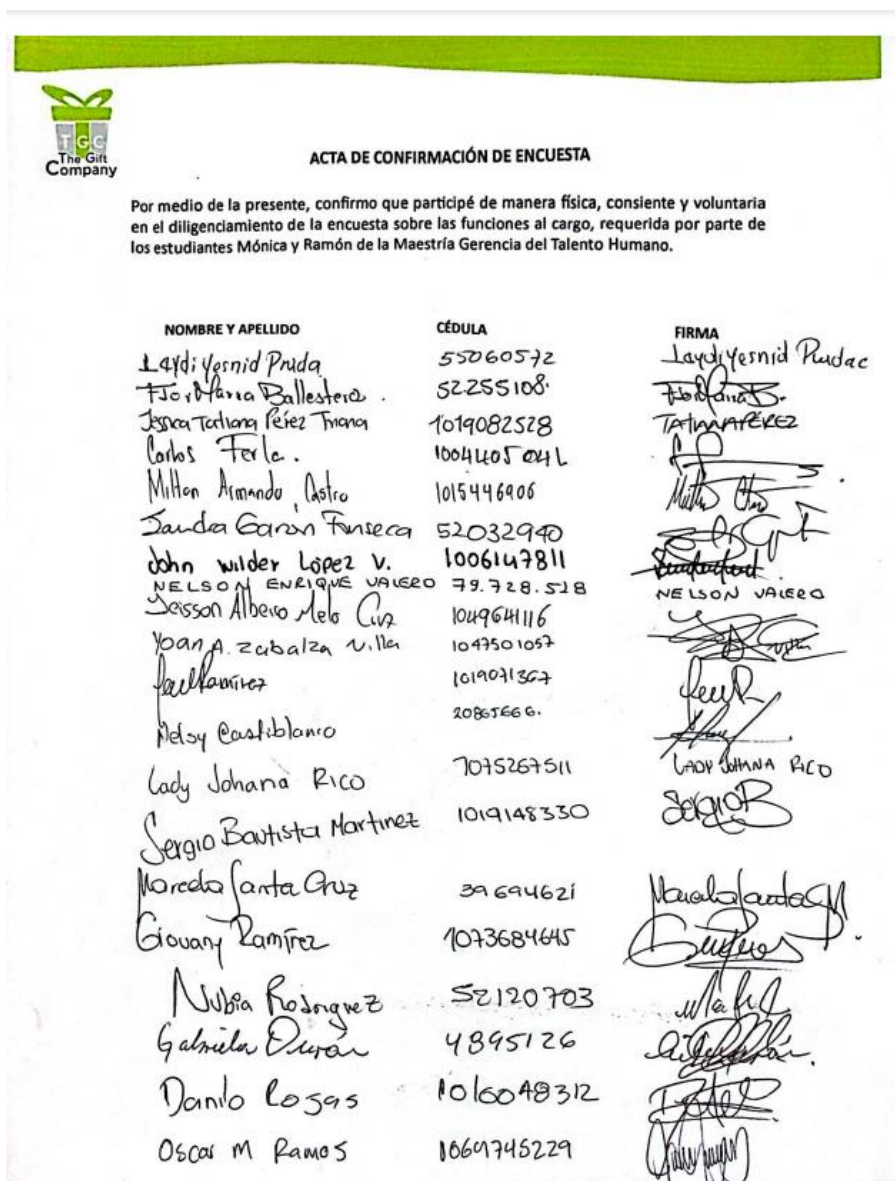 TGC
The Gift
Company
ACTA DE CONFIRMACIÓN DE ENCUESTA
Por medio de la presente, confirmo que participé de manera física, consiente y voluntaria
en el diligenciamiento de la encuesta sobre las funciones al cargo, requerida por parte de
los estudiantes Mónica y Ramón de la Maestría Gerencia del Talento Humano.
NOMBRE Y APELLIDO CÉDULA FIRMA
Laydi Yesnid Pruda 55060572 Laydi Yesnid Prudac
Flor María Ballestero. 52255108.
Jessica Tatiana Pérez Triana 1019082528 TATIANA PÉREZ
Carlos Ferla. 
Milton Armando Castro 1015446906
Sandra Garzon Fonseca 52032940
John wilder López V. 1006147811
NELSON ENRIQUE VALERO 79.728.528 NELSON VALERO
Jeisson Albeiro Melo Cruz 1049641116
Yoan A. Zabalza Villa 1047501057
Ramírez 1019071367
Nelsy Castiblanco 20865666.
Lady Johana RICO 1075267511 LADY JOHANA RICO
Sergio Bautista Martinez 1019148330 Sergio B
Marcela Santa Cruz 39694621
Giovany Ramírez 1073684645
Nubia Rodriguez 52120703
Gabriela Durán 4895126
Danilo Rosas 1016048312
Oscar M Ramos 1069745229